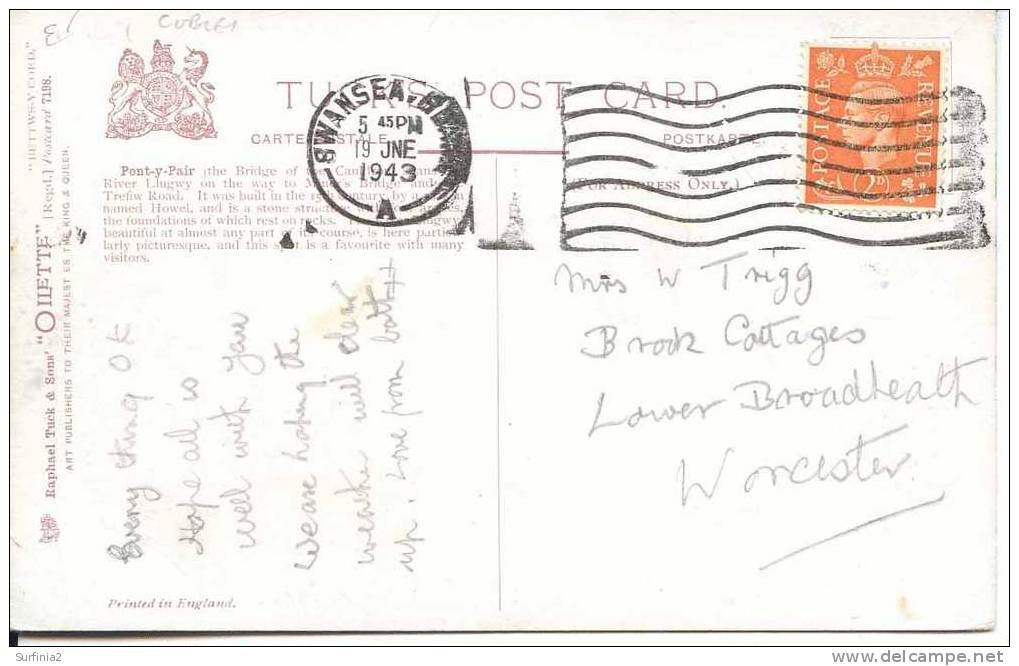 TUCK'S POST CARD.
CARTE POSTALE
POSTKARTE
(FOR ADDRESS ONLY.)
SWANSEA
5 45PM
19 JNE
1943
A
POSTAGE
REVENUE
2D
Pont-y-Pair (the Bridge of the
River Llugwy on the way to Bridge and
Trefiw Road. It was built in the 15th century by a
named Howel, and is a stone structure
the foundations of which rest on rocks.
beautiful at almost any part of its course, is here particu-
larly picturesque, and this spot is a favourite with many
visitors.
Every thing O K
Hope all is
well with You
Wease hoping the
weather will clear
up. Love from both ++
Mrs W Trigg
Brook Cottages
Lower Broadheath
Worcester.
Raphael Tuck & Sons' "OILETTE" [Regd.] Postcard 7198.
"BETTWS-Y-COED."
ART PUBLISHERS TO THEIR MAJESTIES THE KING & QUEEN.
Printed in England.
Surfinia2
delcampe.net